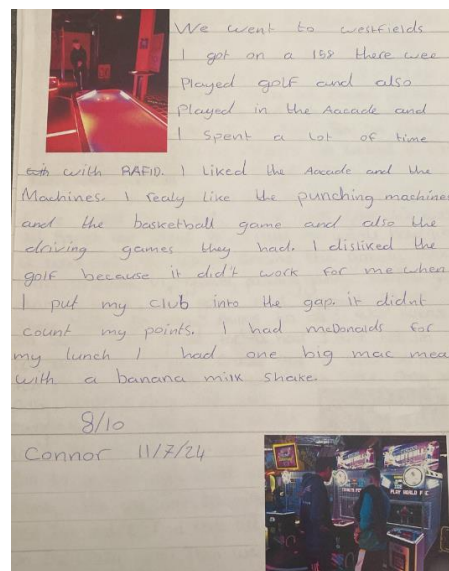 We went to westfields
I got on a 158 there wee
Played golf and also
Played in the Aacade and
I spent a lot of time
with RAFID. I liked the Aacade and the
Machines. I realy like the punching machines
and the basketball game and also the
driving games they had. I disliked the
golf because it did't work for me when
I put my club into the gap. it didnt
count my points. I had mcDonalds for
my lunch I had one big mac mea
with a banana milk shake.
8/10
Connor 11/7/24